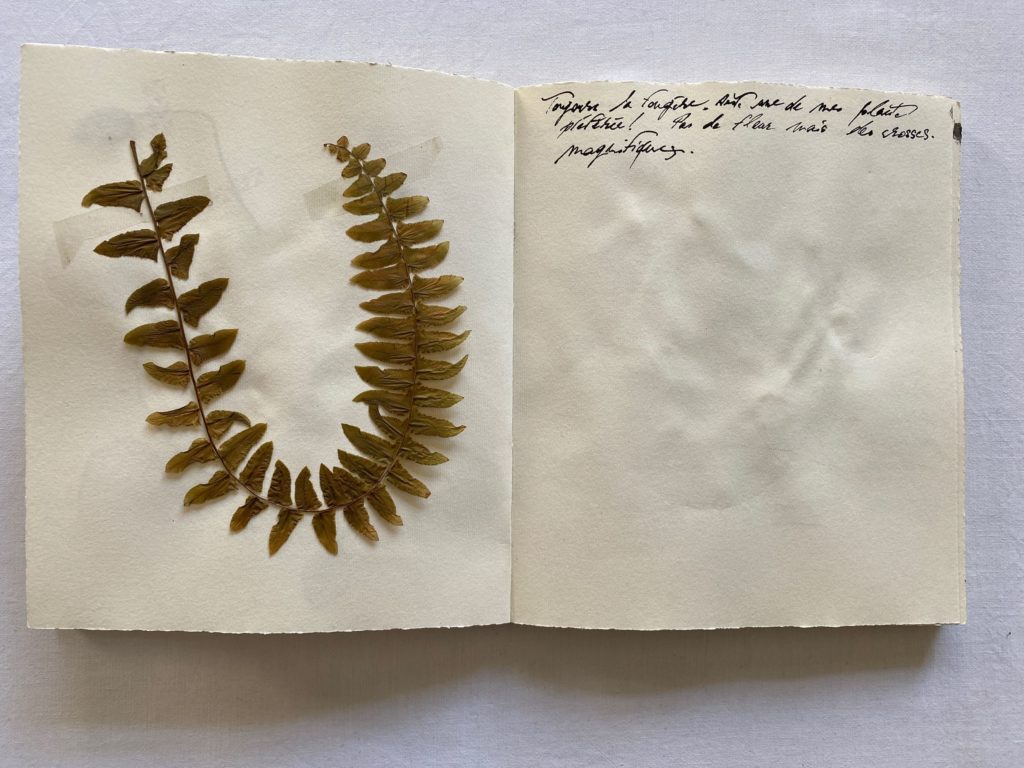 Toujours la fougère. une de mes plante
préférée! Pas de fleur mais des crosses.
magnifiques.